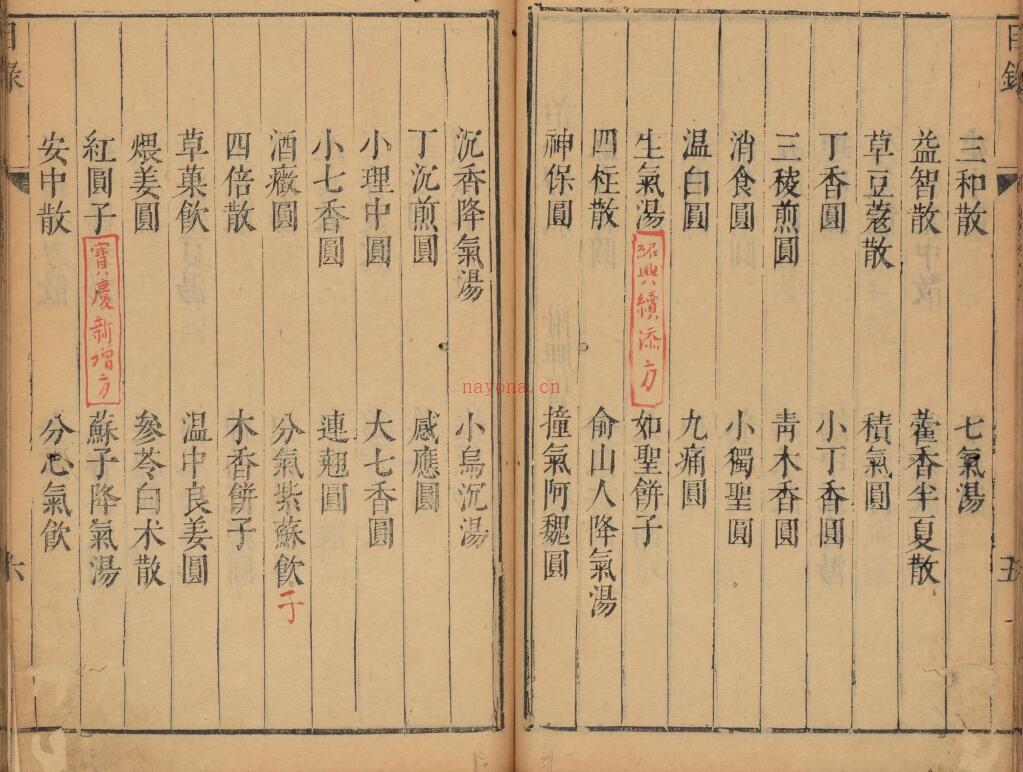 目錄
五
三和散 七氣湯
益智散 藿香半夏散
草豆蔻散 積氣圓
丁香圓 小丁香圓
三稜煎圓 青木香圓
消食圓 小獨聖圓
温白圓 九痛圓
生氣湯 紹興續添方 如聖餅子
四柱散 俞山人降氣湯
神保圓 撞氣阿魏圓
沉香降氣湯 小烏沉湯
丁沉煎圓 感應圓
小理中圓 大七香圓
小七香圓 連翹圓
酒癥圓 分氣紫蘇飲子
四倍散 木香餅子
草菓飲 温中良姜圓
煨姜圓 參苓白术散
紅圓子 寶慶新增方 蘇子降氣湯
安中散 分心氣飲
目錄
六
nayona.cn